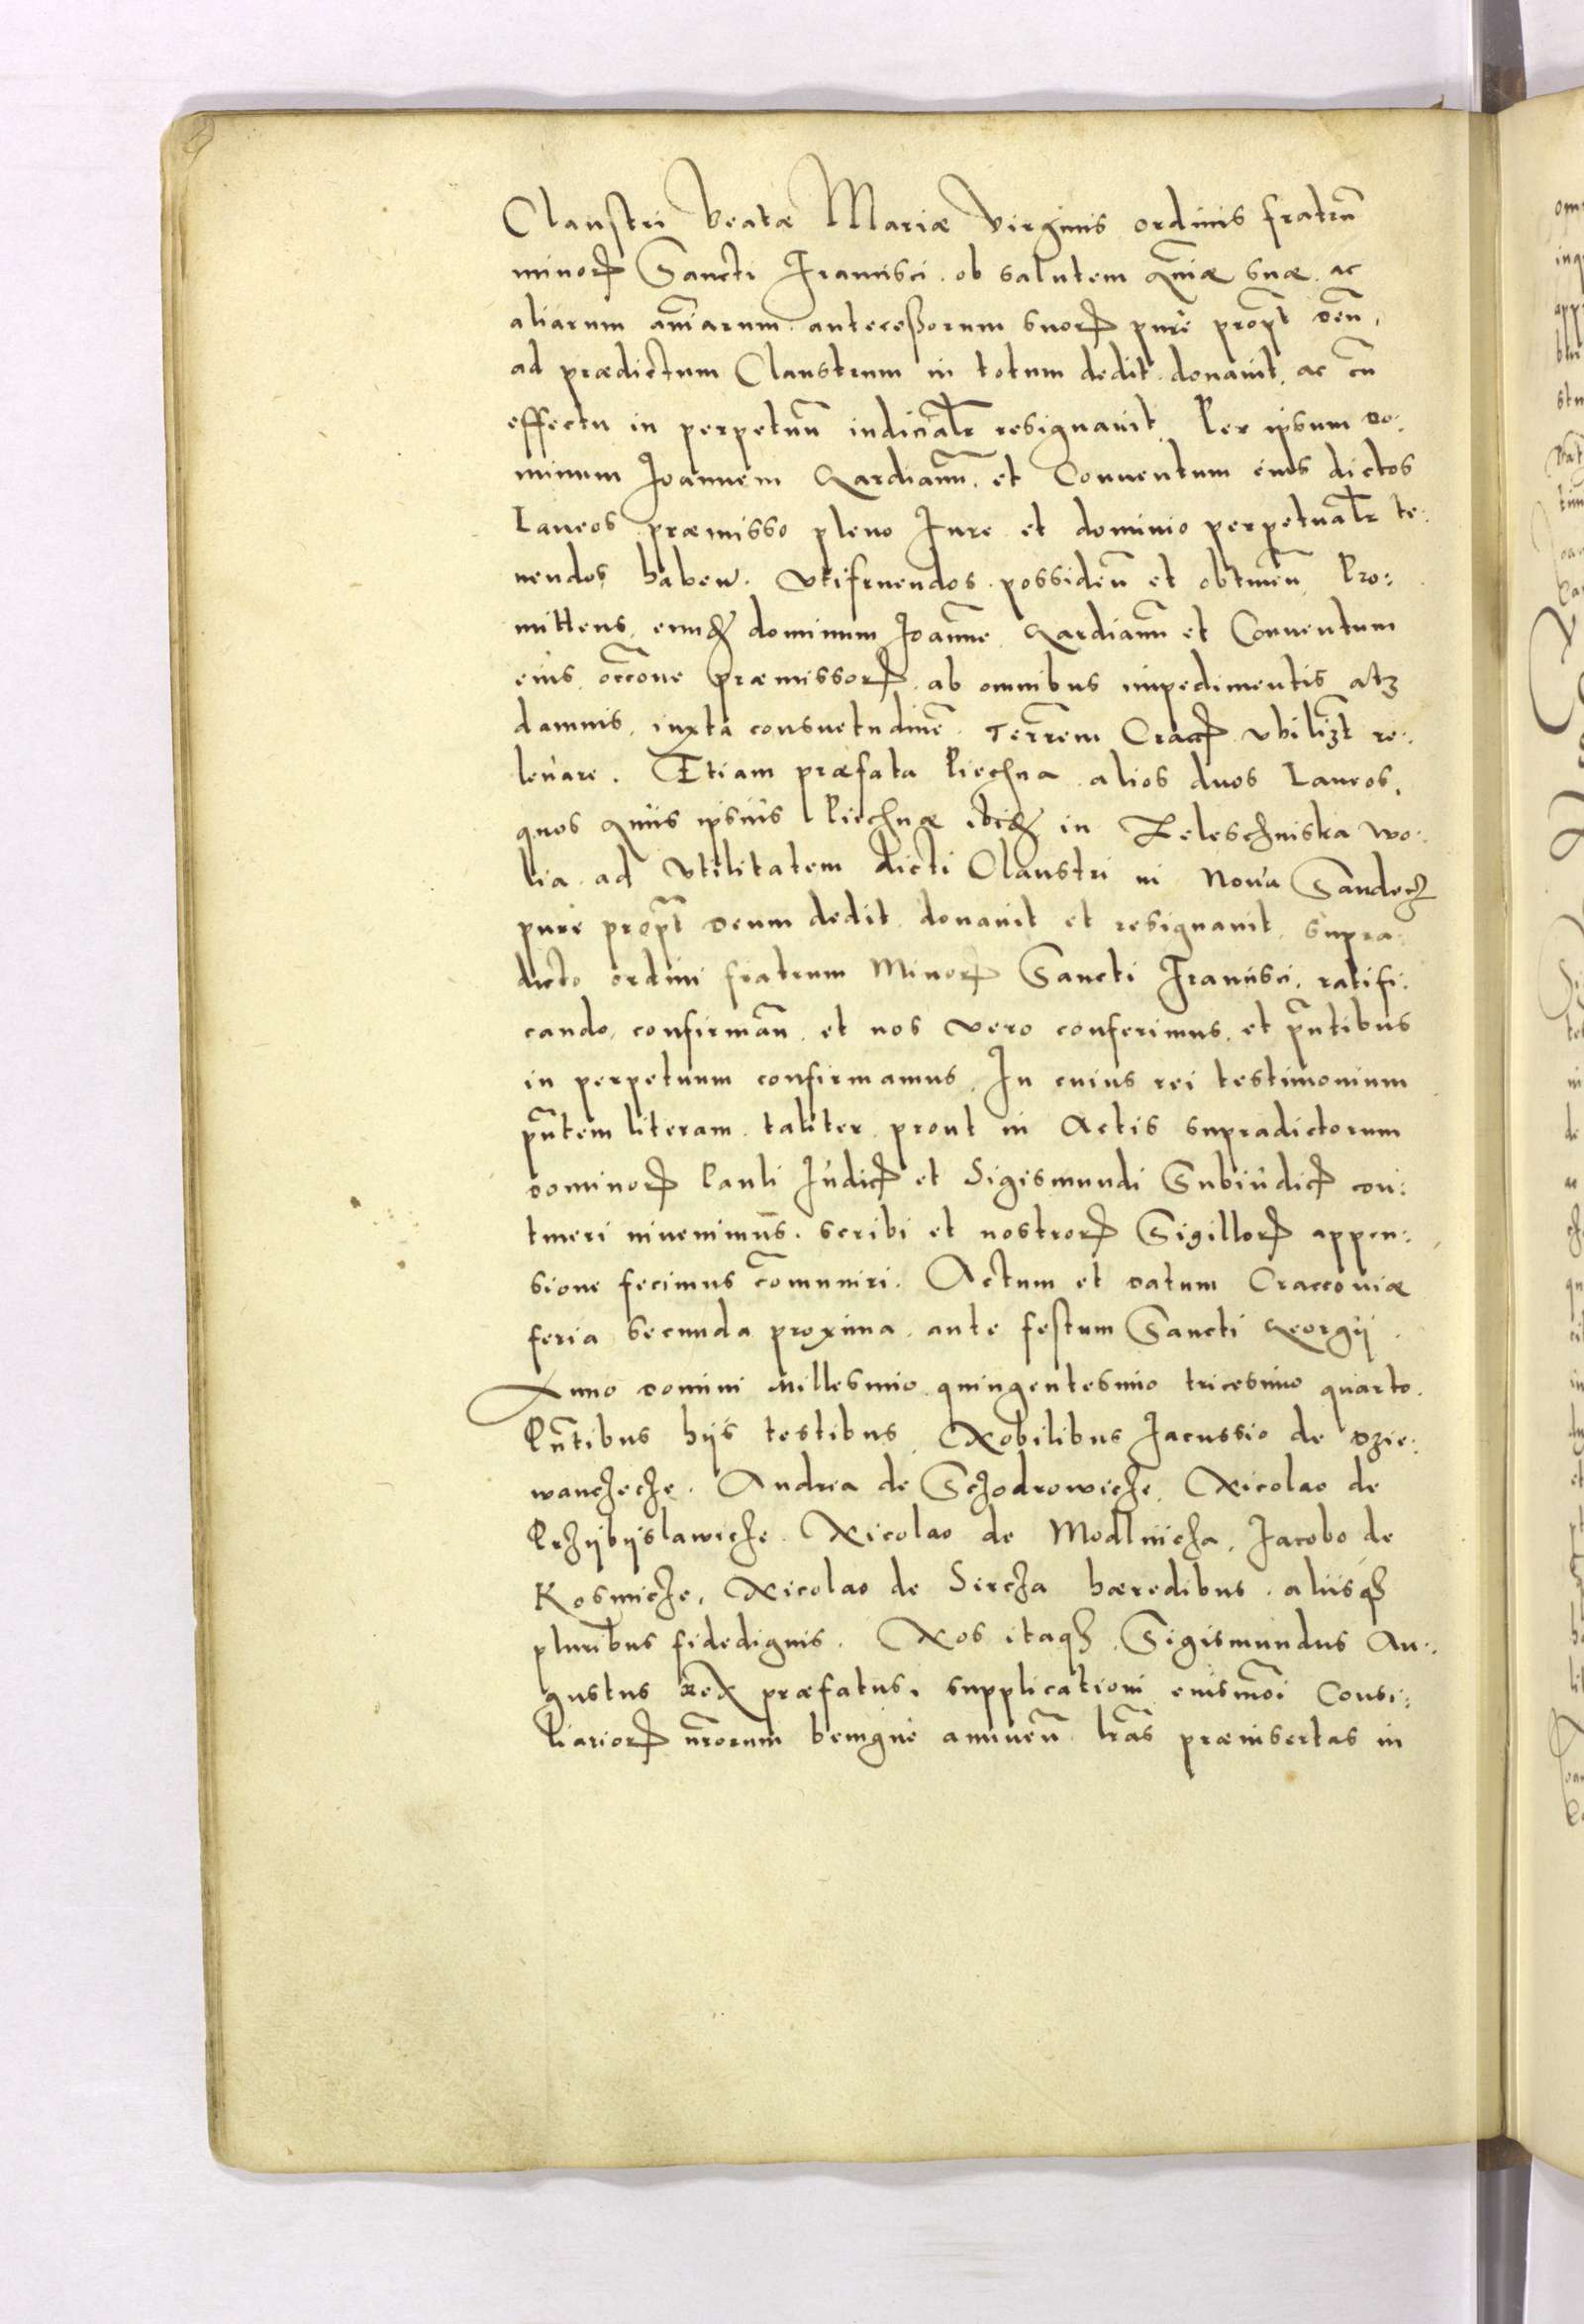 Claustri beatæ Mariæ Virginis ordinis fratrū
minorꝝ Sancti Francisci ob salutem aīæ suæ ac
aliarum aīarum anteceßorum suorꝝ pure propt̄ deū,
ad prædictum Claustrum in totum dedit donavit ac cū
effectu in perpetuū iudicialr̄ resignavit. Per ipsum do:
minum Joannem Gardianū et Conventum eius dictos
Laneos præmisso pleno Jure et dominio perpetualr̄ te:
nendos haben. Utifruendos possideñ et obtineñ. Pro:
mittens eundē dominum Joannē Gardianū et Conventum
eius occōne præmissorꝝ ab omnibus impedimentis atqȝ
damnis, iuxta consuetudinē Terrēm Cracꝝ ubilizt re:
levare. Etiam præfata Piechna alios duos Laneos,
quos ipsius Piechnæ ibidē in Zeleschniska wo:
lia ad utilitatem dicti Claustri in Nova Sandecz
pure propt̄ deum dedit donavit et resignavit supra
dicto ordini fratrum Minorꝝ Sancti Francisci, ratifi:
cando, confirmañ et nos vero conferimus et pn̄tibus
in perpetuum confirmamus. In cuius rei testimonium
pn̄tem literam taliter prout in Actis supradictorum
dominorꝝ Pauli Judicꝭ et Sigismundi Subiudicꝭ con:
tineri invenimus scribi et nostrorꝝ Sigillorꝝ appen:
sione fecimus cōmuniri. Actum et datum Cracoviæ
feria secunda proxima ante festum Sancti Georgij.
Anno domini Millesimo quingentesimo tricesimo quarto.
Pn̄tibus hijs testibus Nobilibus Jacussio de Dzie:
wancheche. Andrea de Schodrowicze, Nicolao de
Przijbijslawicze Nicolao de Modlnicza, Jacobo de
Kosmicze, Nicolao de Siercza hæredibus aliisqȝ
pluribus fidedignis. Nos itaqȝ Sigismundus Au:
gustus Rex præfatus, supplicationi eiusmōi Consi:
liariorꝝ nr̄orum benigne annueñ lr̄as præinsertas in